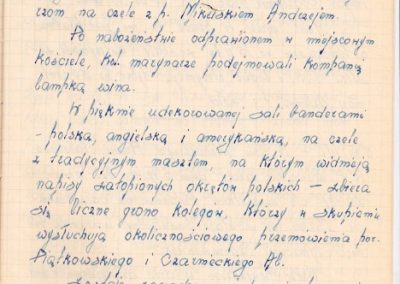 czom na czele z p. Mikulskiem Andrzejem.
Po nabożeństwie odprawionem w miejscowym
kościele, kol. marynarze podejmowali kompanię
lampką wina.
W pięknie udekorowanej sali banderami
- polską, angielską i amerykańską, na czele
z tradycyjnym masztem, na którym widnieją
napisy zatopionych okrętów polskich – zbiera
się liczne grono kolegów, którzy w skupieniu
wysłuchują okolicznościowego przemówienia por.
Piątkowskiego i Czarneckiego Al.